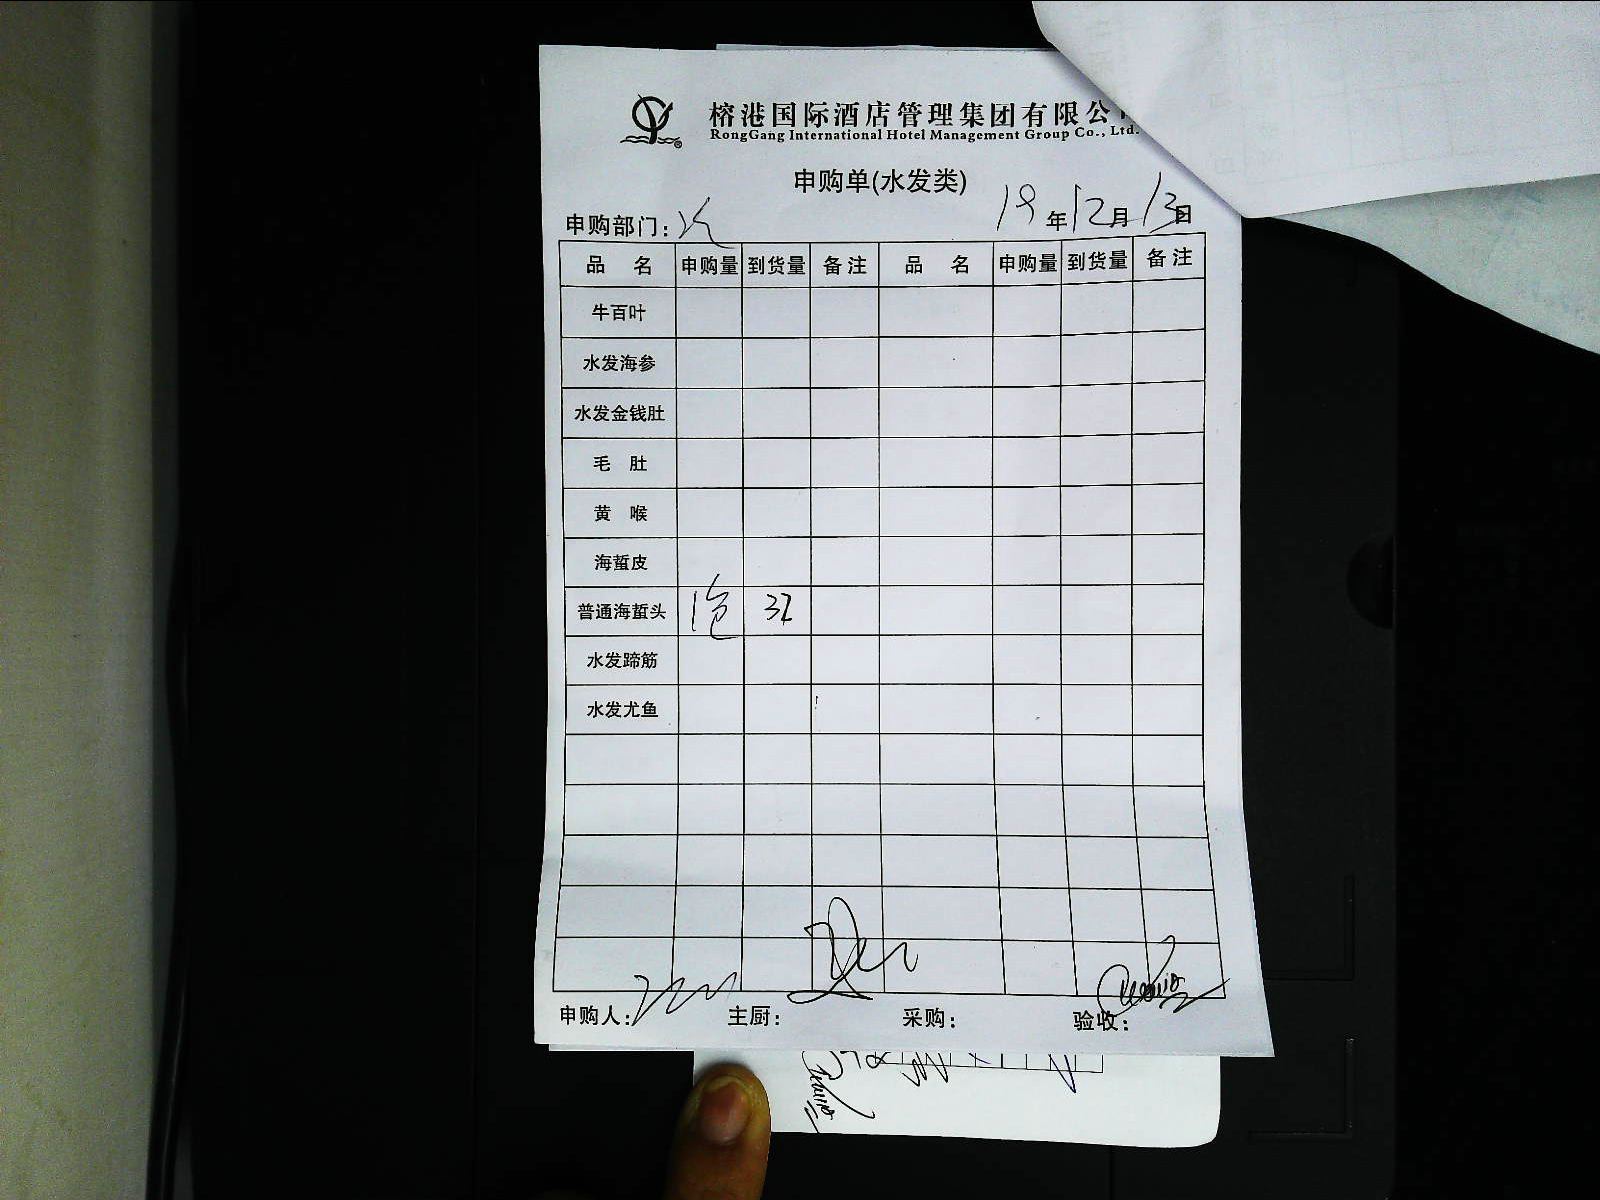 榕港国际酒店管理集团有限公
RongGang International Hotel Management Group Co., Ltd.
申购单(水发类)
申购部门: 19年12月13日
品 名 申购量 到货量 备注 品 名 申购量 到货量 备注
牛百叶
水发海参
水发金钱肚
毛 肚
黄 喉
海蜇皮
普通海蜇头 1包 32
水发蹄筋
水发尤鱼
申购人: 主厨: 采购: 验收: